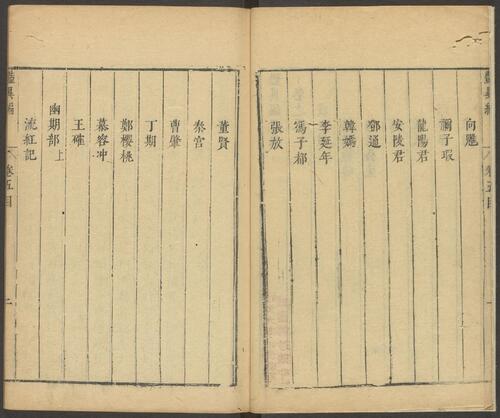 向魋
彌子瑕
龍陽君
安陵君
鄧通
韓嫣
李延年
馮子都
張放
董賢
秦宮
曹肇
丁期
鄭櫻桃
慕容冲
王確
幽期部上
流紅記
豔異編
卷五目